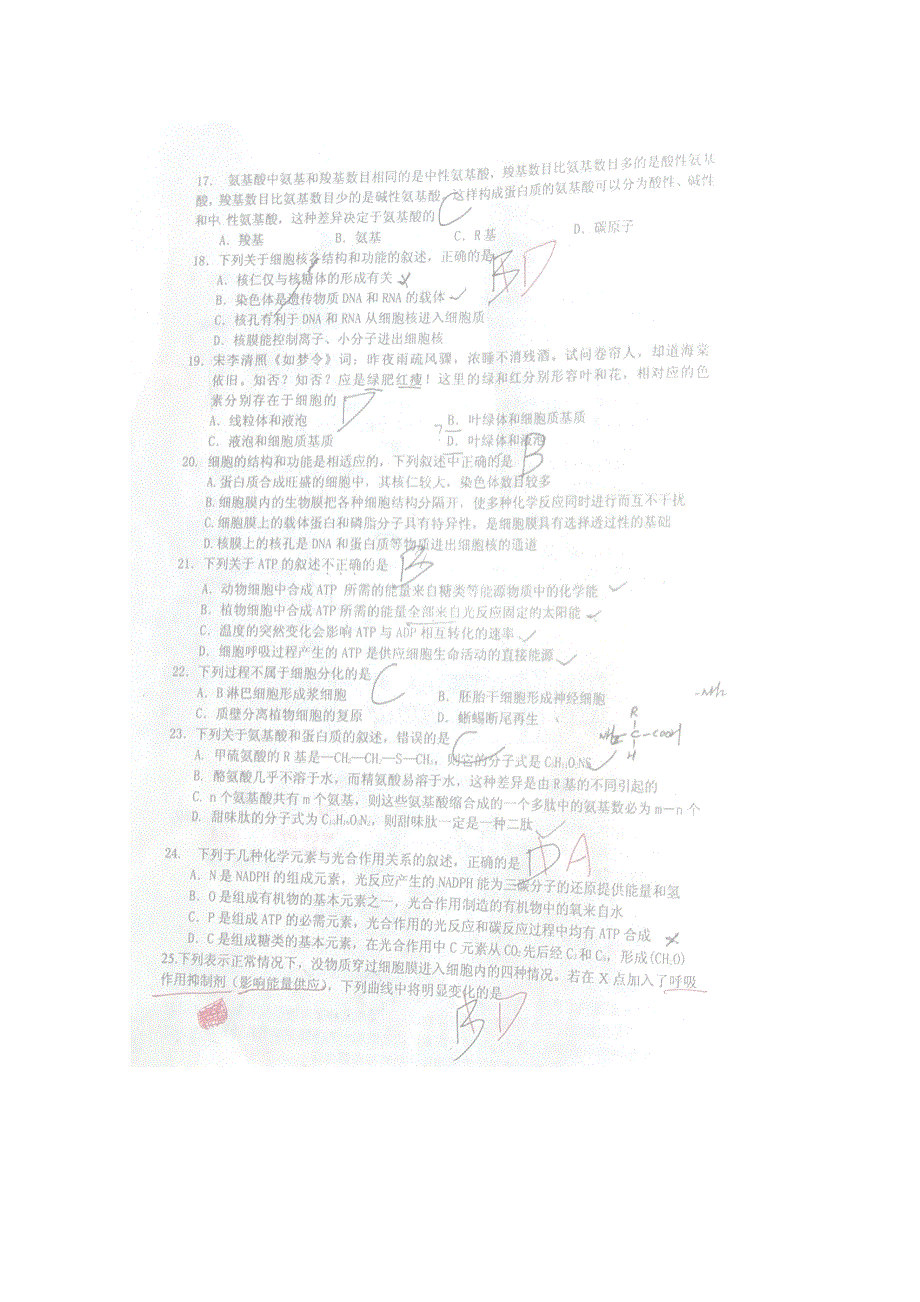 17. 氨基酸中氨基和羧基数目相同的是中性氨基酸，羧基数目比氨基数目多的是酸性氨基
酸，羧基数目比氨基数目少的是碱性氨基酸，这样构成蛋白质的氨基酸可以分为酸性、碱性
和中性氨基酸，这种差异决定于氨基酸的 C
A．羧基 B．氨基 C．R基 D、碳原子
18．下列关于细胞核各结构和功能的叙述，正确的是 B D
A．核仁仅与核糖体的形成有关
B．染色体是遗传物质DNA和RNA的载体
C．核孔有利于DNA和RNA从细胞核进入细胞质
D．核膜能控制离子、小分子进出细胞核
19．宋李清照《如梦令》词：昨夜雨疏风骤，浓睡不消残酒。试问卷帘人，却道海棠
依旧。知否？知否？应是绿肥红瘦！这里的绿和红分别形容叶和花，相对应的色
素分别存在于细胞的： D
A．线粒体和液泡 B．叶绿体和细胞质基质
C．液泡和细胞质基质 D．叶绿体和液泡
20．细胞的结构和功能是相适应的，下列叙述中正确的是 B
A.蛋白质合成旺盛的细胞中，其核仁较大，染色体数目较多
B.细胞膜内的生物膜把各种细胞结构分隔开，使多种化学反应同时进行而互不干扰
C.细胞膜上的载体蛋白和磷脂分子具有特异性，是细胞膜具有选择透过性的基础
D.核膜上的核孔是DNA和蛋白质等物质进出细胞核的通道
21．下列关于ATP的叙述不正确的是 B
A．动物细胞中合成ATP 所需的能量来自糖类等能源物质中的化学能
B．植物细胞中合成ATP所需的能量全部来自光反应固定的太阳能
C．温度的突然变化会影响ATP与ADP相互转化的速率
D．细胞呼吸过程产生的ATP是供应细胞生命活动的直接能源
22．下列过程不属于细胞分化的是 C
A．B淋巴细胞形成浆细胞 B．胚胎干细胞形成神经细胞 -NH2
C．质壁分离植物细胞的复原 D．蜥蜴断尾再生
23．下列关于氨基酸和蛋白质的叙述，错误的是 C
R
NH2-C-COOH
H
A．甲硫氨酸的R基是—CH2—CH2—S—CH3，则它的分子式是C5H11O2NS
B．酪氨酸几乎不溶于水，而精氨酸易溶于水，这种差异是由R基的不同引起的
C. n个氨基酸共有m个氨基，则这些氨基酸缩合成的一个多肽中的氨基数必为m－n个
D．甜味肽的分子式为C13H16O5N2，则甜味肽一定是一种二肽
24．下列于几种化学元素与光合作用关系的叙述，正确的是 D A
A．N是NADPH的组成元素，光反应产生的NADPH能为三碳分子的还原提供能量和氢
B．O是组成有机物的基本元素之一，光合作用制造的有机物中的氧来自水
C．P是组成ATP的必需元素，光合作用的光反应和碳反应过程中均有ATP合成
D．C是组成糖类的基本元素，在光合作用中C元素从CO2先后经C3和C5，形成(CH2O)
25.下列表示正常情况下，没物质穿过细胞膜进入细胞内的四种情况。若在X点加入了呼吸
作用抑制剂（影响能量供应），下列曲线中将明显变化的是
B D